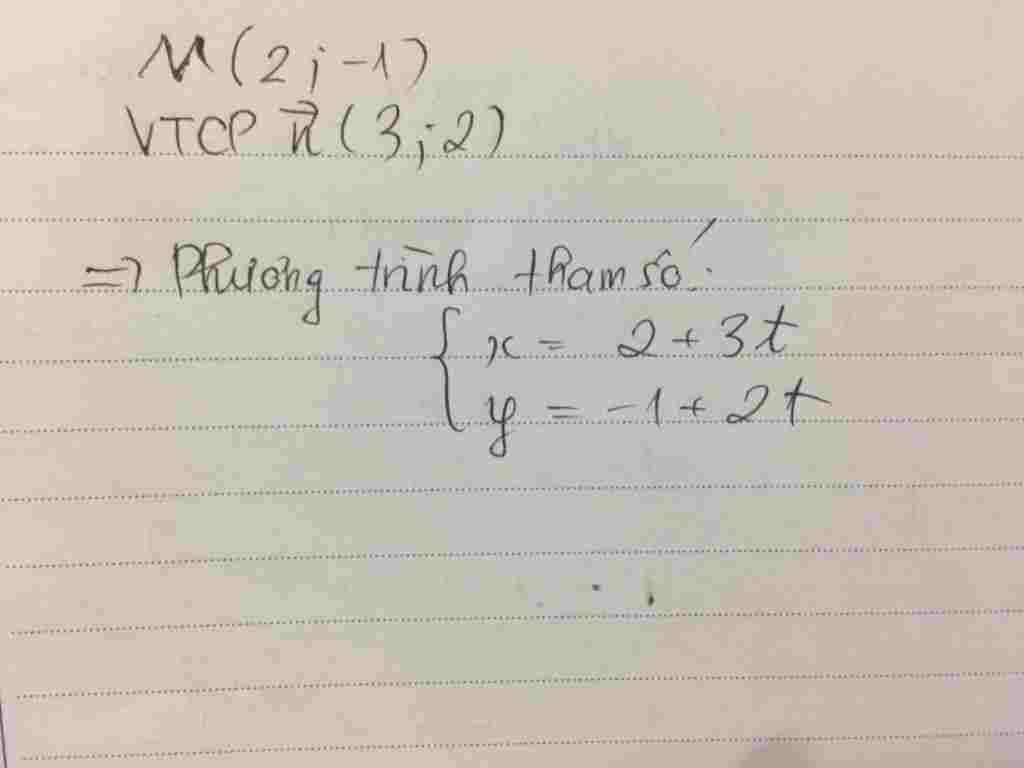 M(2; -1)
VTCP n⃗(3; 2)
=> Phương trình tham số:
{ x = 2 + 3t
y = -1 + 2t